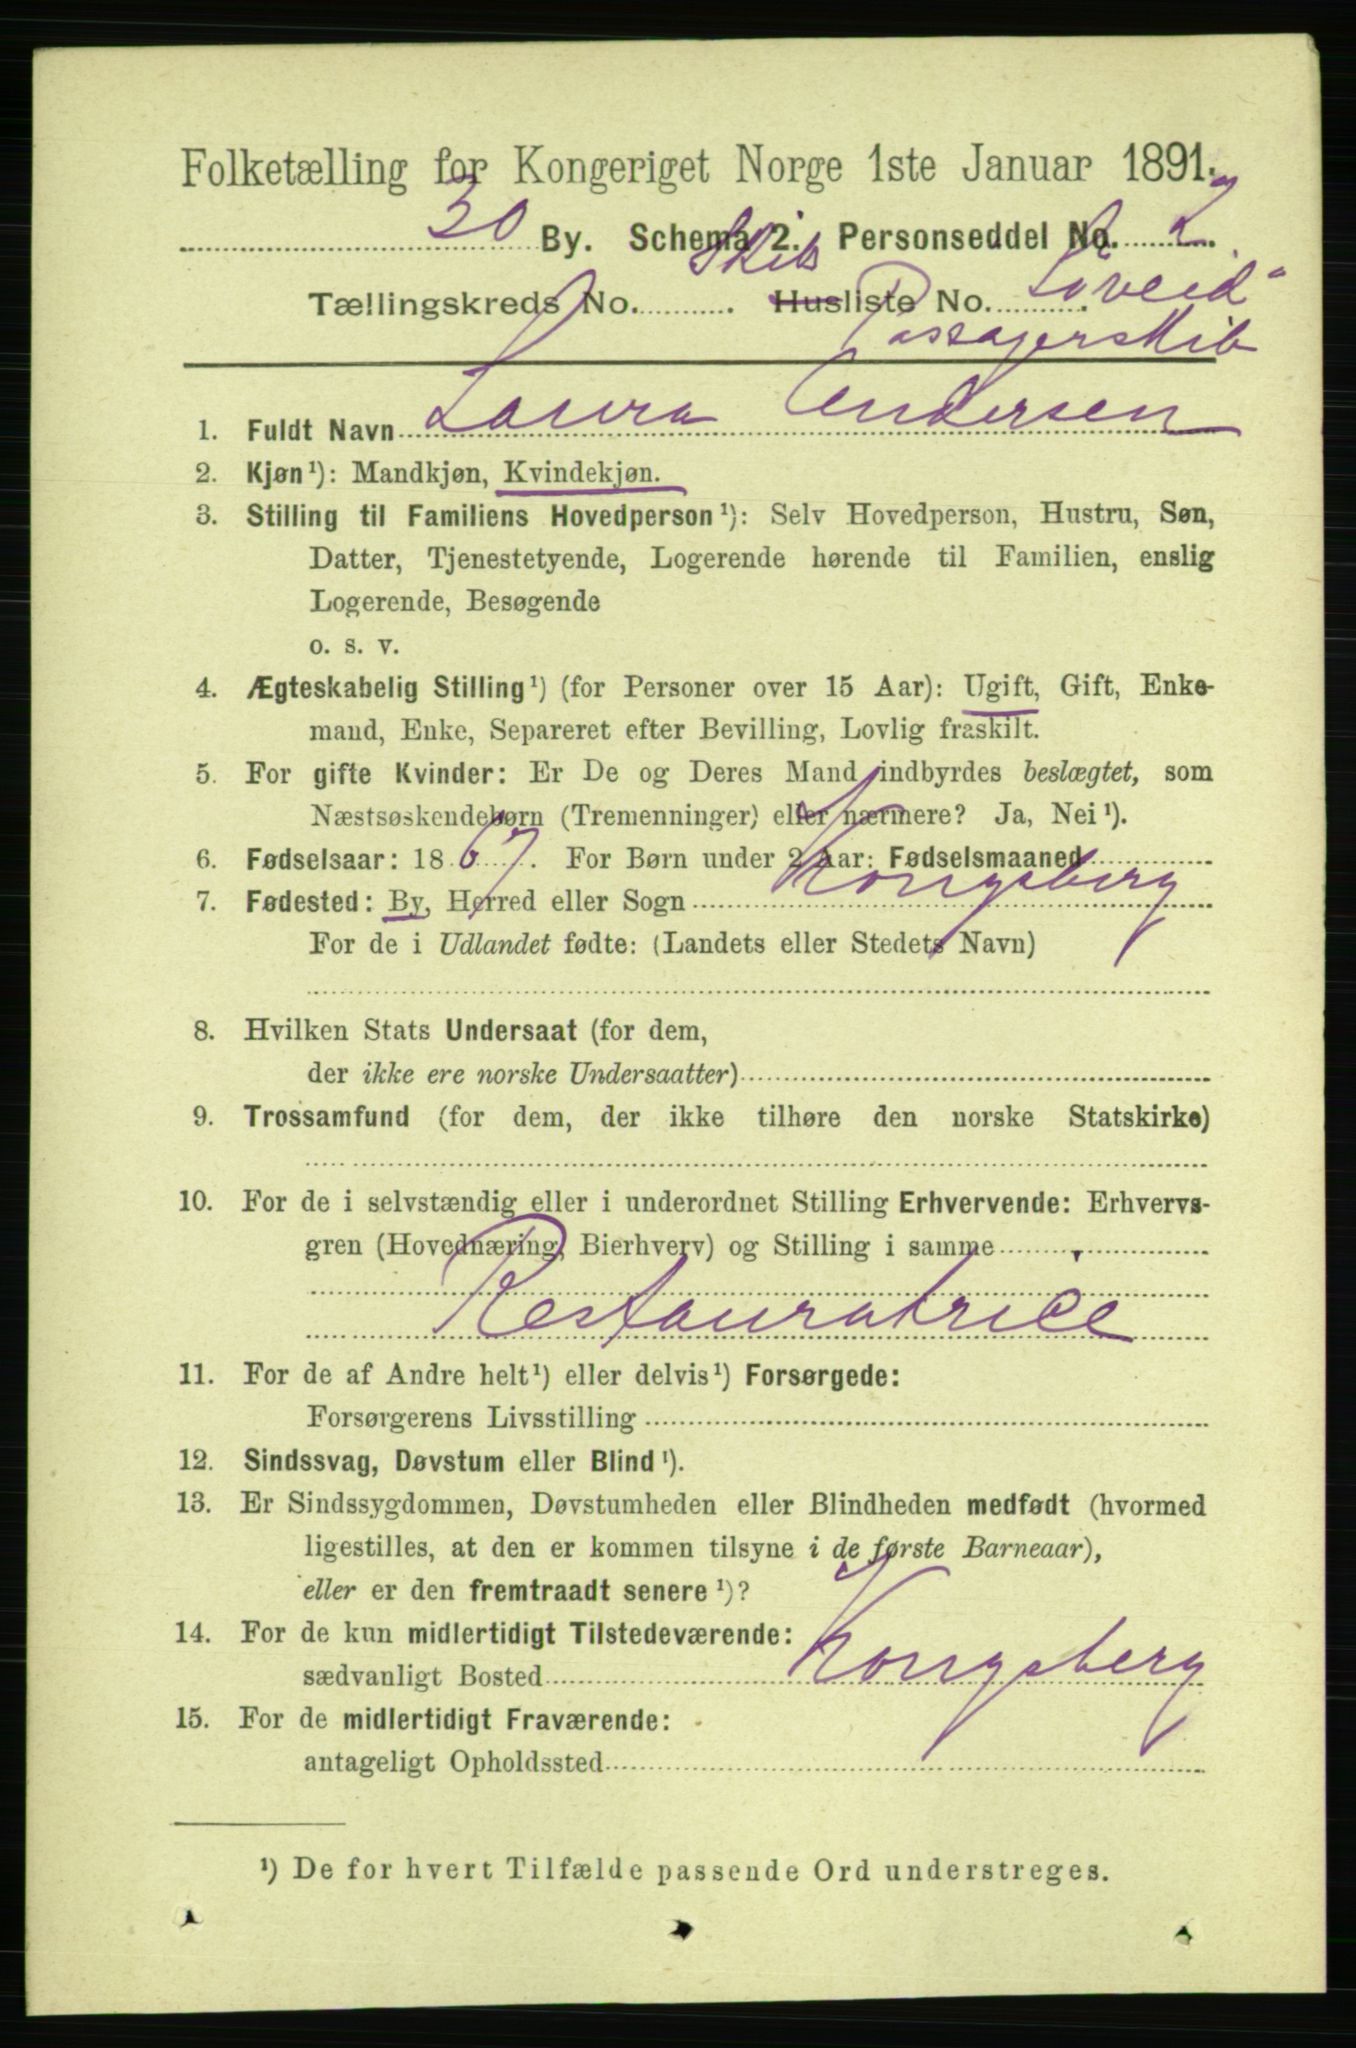 Folketælling for Kongeriget Norge 1ste Januar 1891.
30 By. Schema 2. Personseddel No. 2.
Skibs
Tællingskreds No. . Husliste No. Løveid"
Passagerskib
1. Fuldt Navn Laura Andersen
2. Kjøn¹): Mandkjøn, Kvindekjøn.
3. Stilling til Familiens Hovedperson¹): Selv Hovedperson, Hustru, Søn,
Datter, Tjenestetyende, Logerende hørende til Familien, enslig
Logerende, Besøgende
o. s. v.
4. Ægteskabelig Stilling¹) (for Personer over 15 Aar): Ugift, Gift, Enke-
mand, Enke, Separeret efter Bevilling, Lovlig fraskilt.
5. For gifte Kvinder: Er De og Deres Mand indbyrdes beslægtet, som
Næstsøskendebørn (Tremenninger) eller nærmere? Ja, Nei¹).
6. Fødselsaar: 1867. For Børn under 2 Aar: Fødselsmaaned
7. Fødested: By, Herred eller Sogn Kongsberg
For de i Udlandet fødte: (Landets eller Stedets Navn)
8. Hvilken Stats Undersaat (for dem,
der ikke ere norske Undersaatter)
9. Trossamfund (for dem, der ikke tilhøre den norske Statskirke)
10. For de i selvstændig eller i underordnet Stilling Erhvervende: Erhvervs-
gren (Hovednæring, Bierhverv) og Stilling i samme
Restauratrice
11. For de af Andre helt¹) eller delvis¹) Forsørgede:
Forsørgerens Livsstilling
12. Sindssvag, Døvstum eller Blind¹).
13. Er Sindssygdommen, Døvstumheden eller Blindheden medfødt (hvormed
ligestilles, at den er kommen tilsyne i de første Barneaar),
eller er den fremtraadt senere¹)?
14. For de kun midlertidigt Tilstedeværende:
sædvanligt Bosted Kongsberg
15. For de midlertidigt Fraværende:
antageligt Opholdssted
¹) De for hvert Tilfælde passende Ord understreges.